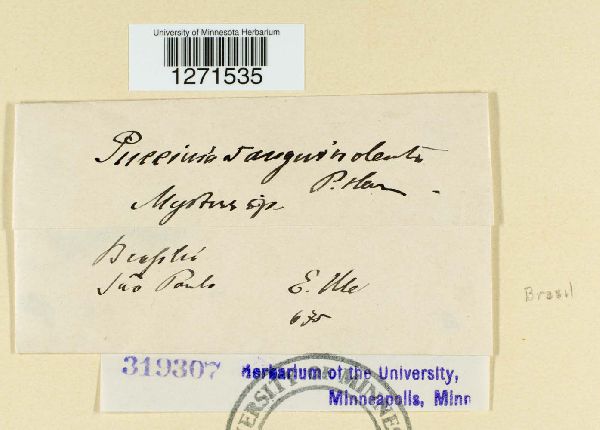 University of Minnesota Herbarium
1271535
Puccinia sanguinolenta
P. Hen
sp.
São Paulo
E. Ule
Brasil
319307
Herbarium of the University,
Minneapolis, Minn
ERSITY OF MINNES